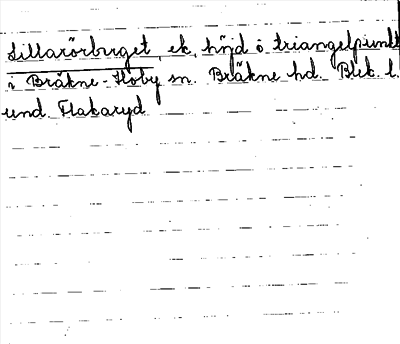 Lillarörbuget, ek, höjd o triangelpunkt
i Bräkne-Hoby sn. Bräkne hd. Blek. l.
und Flakaryd